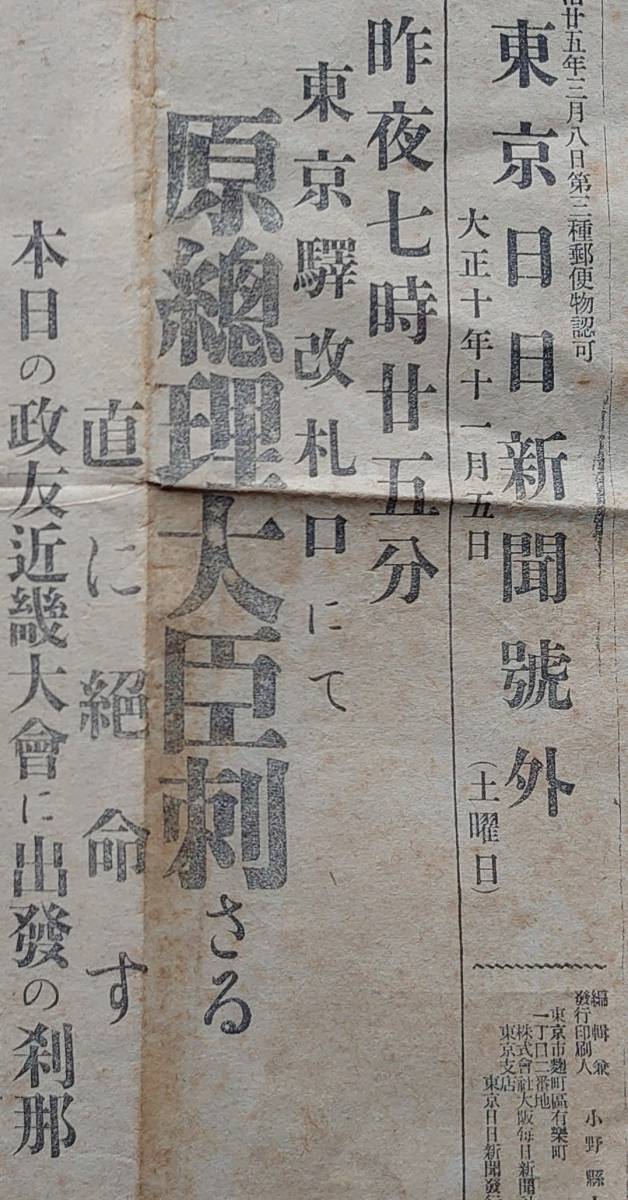 廿五年三月八日第三種郵便物認可
東京日日新聞號外
大正十年十一月五日
(土曜日)
編輯兼
發行印刷人
小野
東京市麴町區有樂町
一丁目二番地
株式會社大阪每日新聞
東京支店
東京日日新聞發
昨夜七時廿五分
東京驛改札口にて
原總理大臣刺さる
直に絕命す
本日の政友近畿大會に出發の刹那